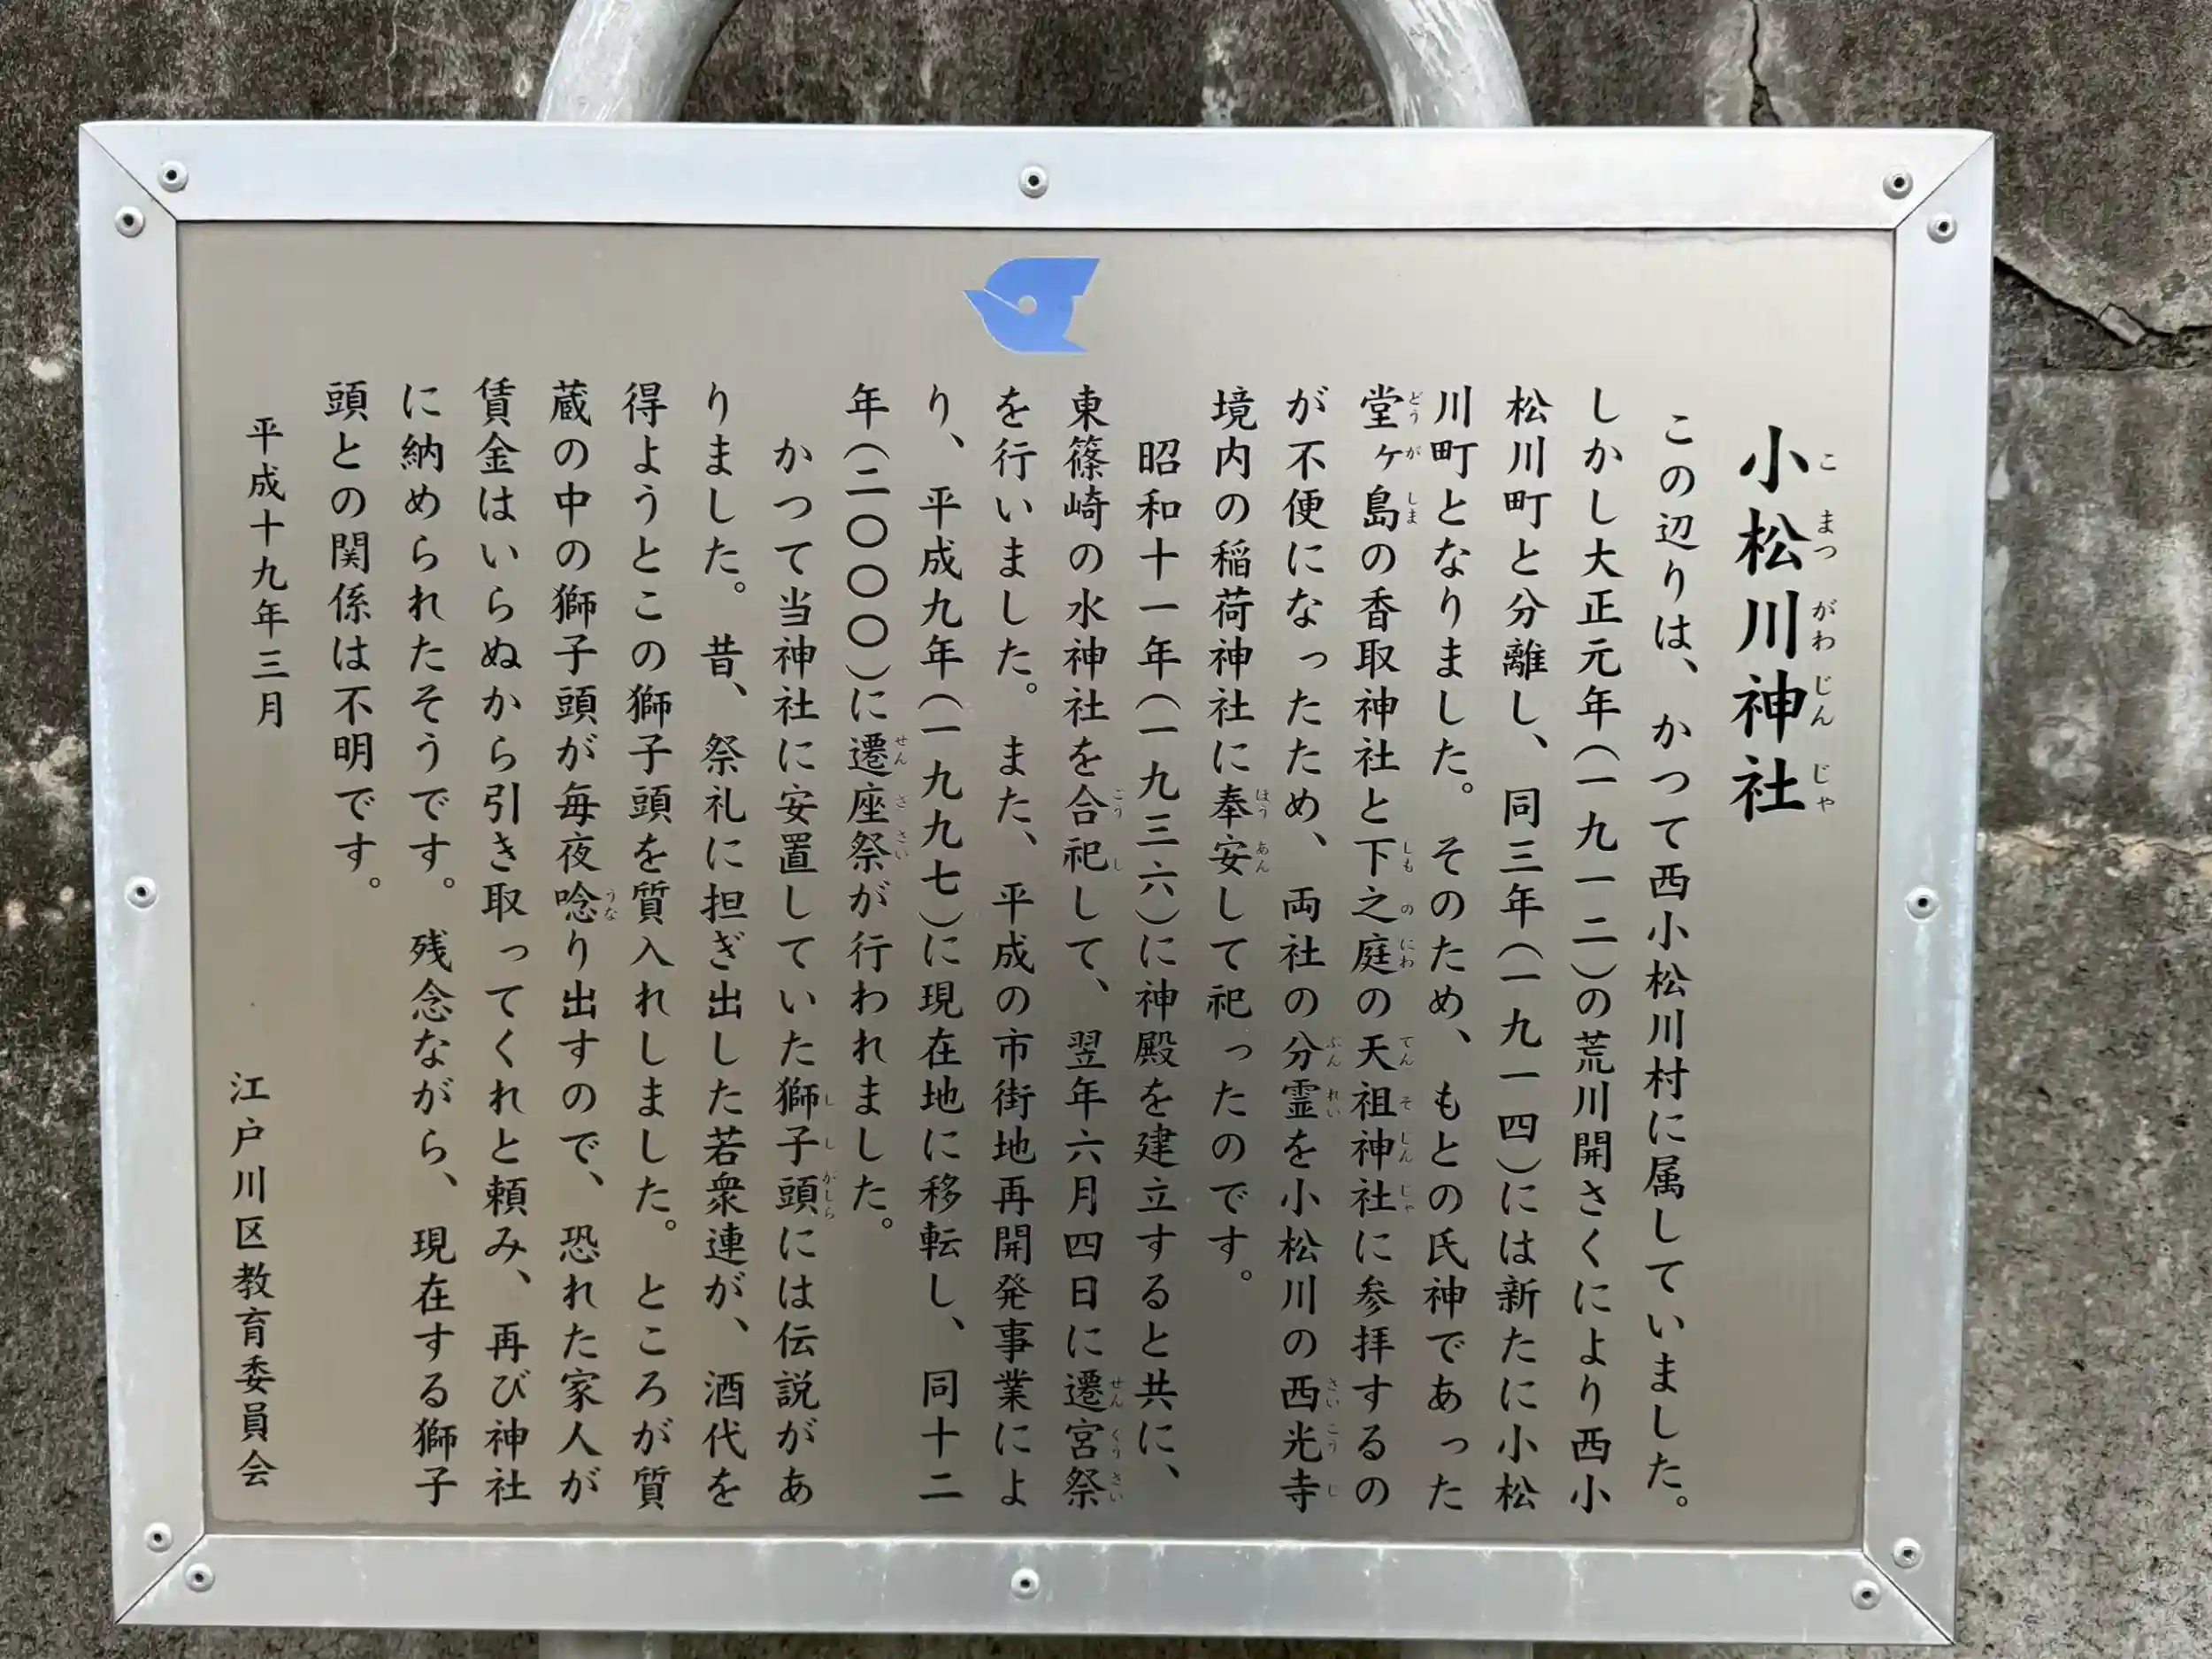 小松川神社
この辺りは、かつて西小松川村に属していました。
しかし大正元年(一九一二)の荒川開さくにより西小
松川町と分離し、同三年(一九一四)には新たに小松
川町となりました。そのため、もとの氏神であった
堂ヶ島の香取神社と下之庭の天祖神社に参拝するの
が不便になったため、両社の分霊を小松川の西光寺
境内の稲荷神社に奉安して祀ったのです。
昭和十一年(一九三六)に神殿を建立すると共に、
東篠崎の水神社を合祀して、翌年六月四日に遷宮祭
を行いました。また、平成の市街地再開発事業によ
り、平成九年(一九九七)に現在地に移転し、同十二
年(二〇〇〇)に遷座祭が行われました。
かつて当神社に安置していた獅子頭には伝説があ
りました。昔、祭礼に担ぎ出した若衆連が、酒代を
得ようとこの獅子頭を質入れしました。ところが質
蔵の中の獅子頭が毎夜唸り出すので、恐れた家人が
賃金はいらぬから引き取ってくれと頼み、再び神社
に納められたそうです。残念ながら、現在する獅子
頭との関係は不明です。
平成十九年三月 江戸川区教育委員会